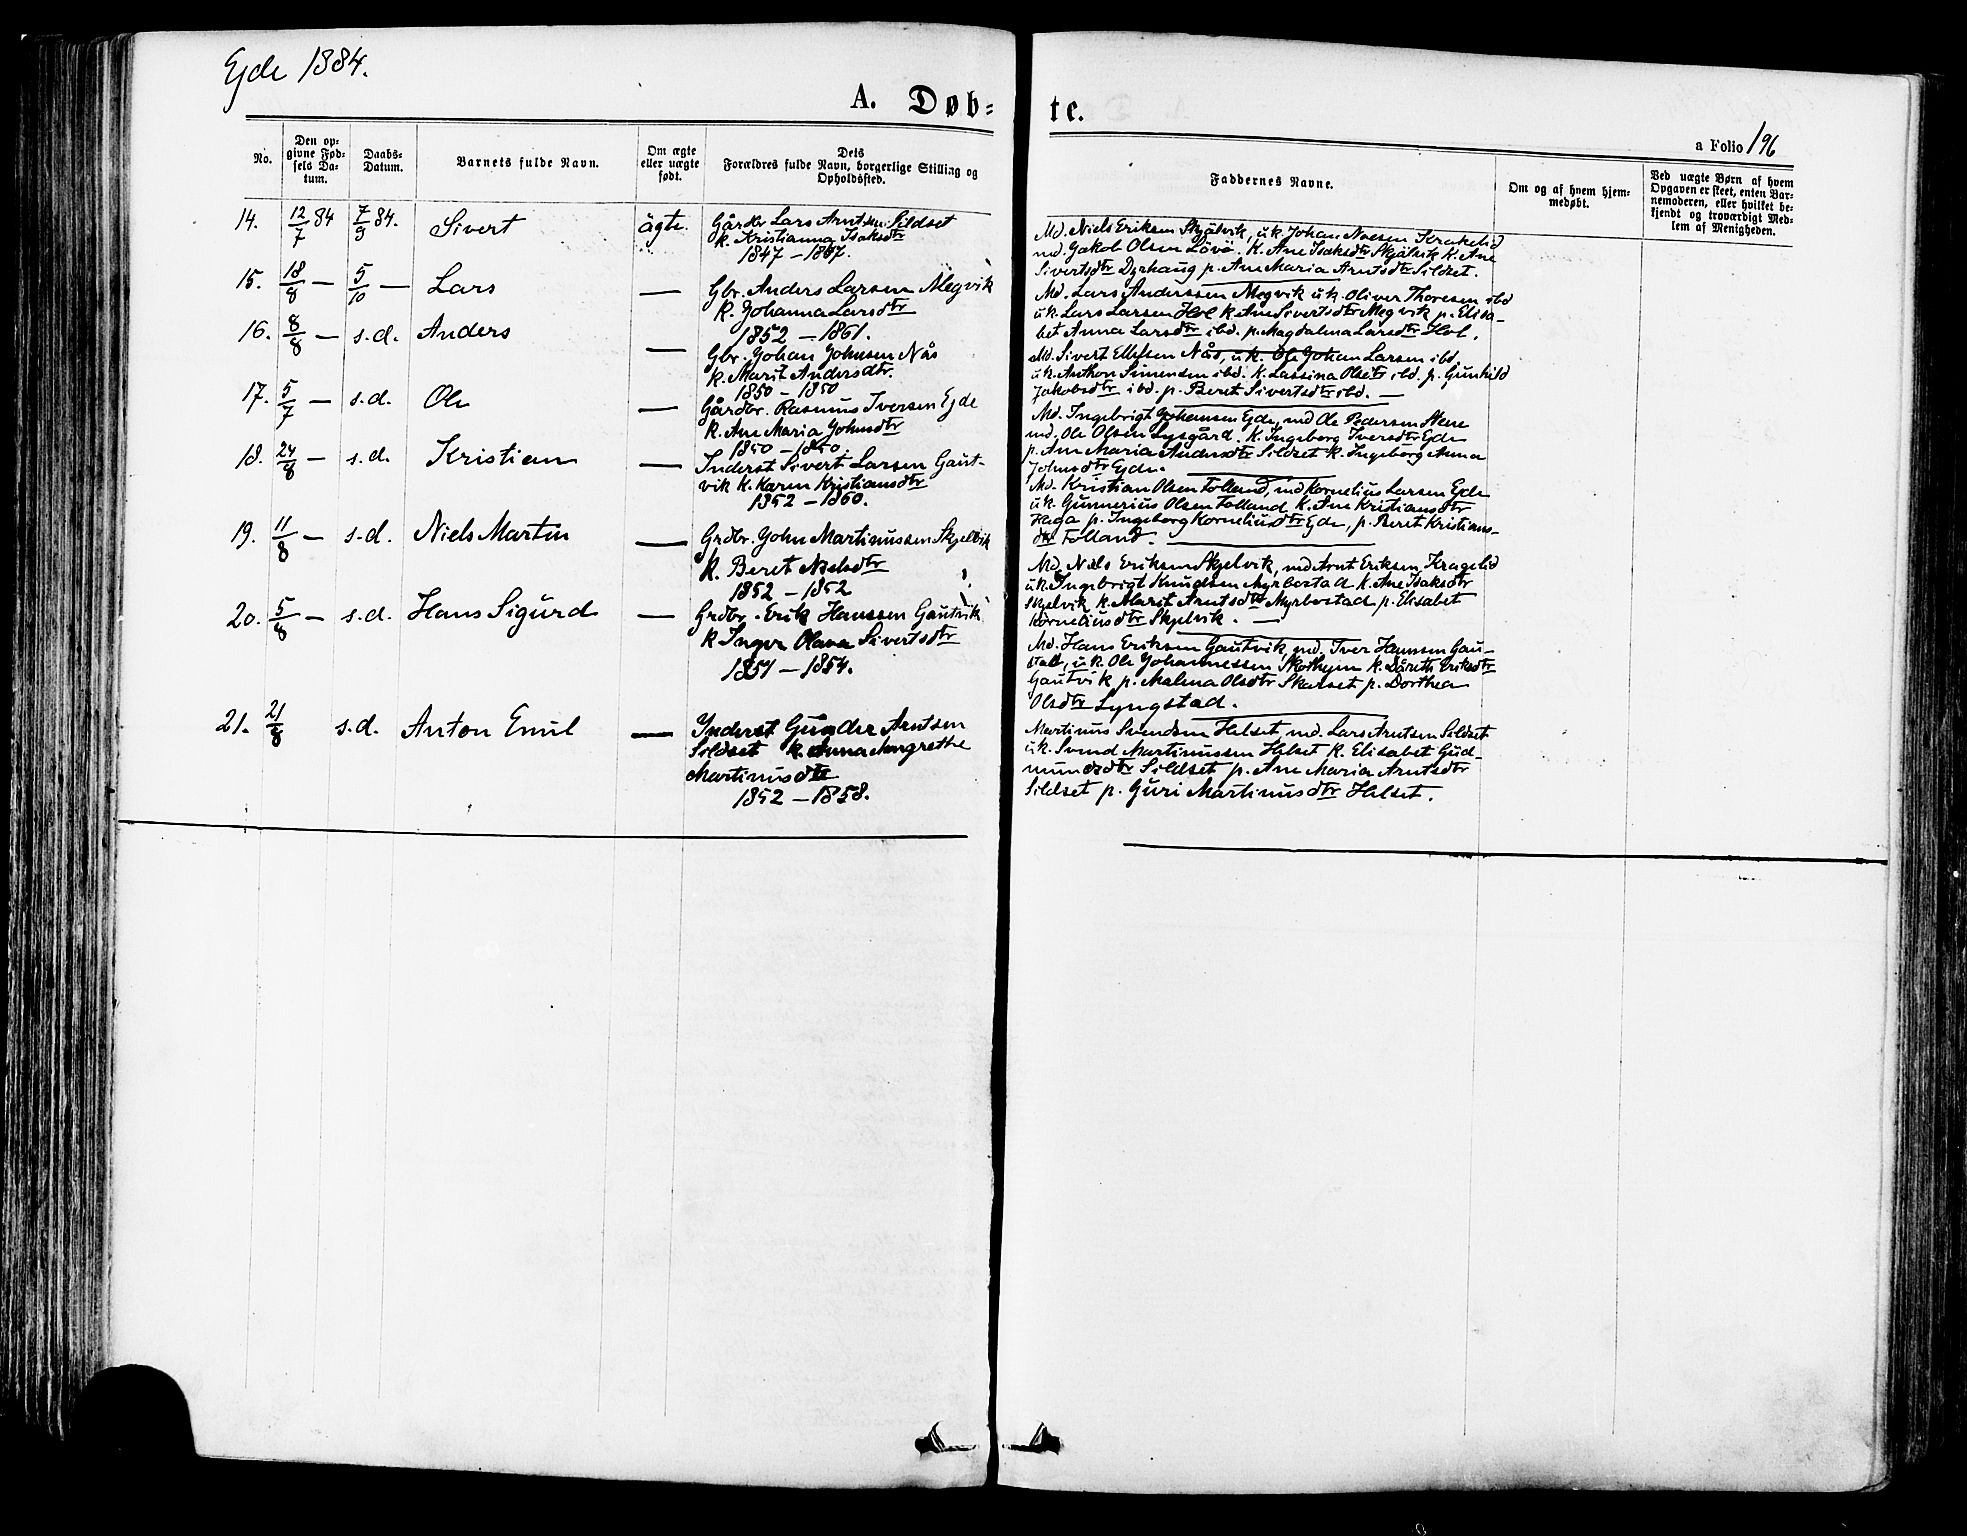 Ejde 1884.
A. Døb=
te.
a Folio 196
No.
Den op-
givne Fød-
sels Da-
tum.
Daabs-
Datum.
Barnets fulde Navn.
Om ægte
eller uægte
født.
Dets
Forældres fulde Navn, borgerlige Stilling og
Opholdssted.
Faddernes Navne.
Om og af hvem hjem-
medøbt.
Ved uægte Børn af hvem
Opgaven er skeet, enten Bar-
nemoderen, eller hvilket be-
kjendt og troværdigt Med-
lem af Menigheden.
14. 12/7 84 7/9 84. Sivert ägte.
Gårdbr. Lars Arntsen Sildset
k. Kristianna Isaksdtr
1847 – 1887.
Md. Niels Eriksen Skjälvik, u.k. Johan Krakelid
md. Jakob Olsen Lövö. K. Ane Isaksdtr Skjälvik K. Ane
Sivertsdtr Dyrhaug p. Ane Maria Arntsdtr Sildset.
15. 18/8 — 5/10 — Lars —
Gbr. Anders Larsen Megvik
K. Johanna Larsdtr
1852 – 1861.
Md. Lars Anderssen Megvik u.k. Oliver Thoresen ibd
u.k. Lars Larsen Hol k. Ane Sivertsdtr Megvik p. Elisa-
bet Anna Larsdtr ibd. p. Magdalena Larsdtr Hol.
16. 8/8 — s.d. Anders —
Gbr. Johan Johnsen Nås
k. Marit Andersdtr.
1850 – 1850
Md. Sivert Ellefsen Nås, u.k. Ole Johan Larsen ibd.
u.k. Anthon Simensen ibd. K. Lassina Olsdtr ibd. p. Gunhild
Jakobsdtr ibd. p. Beret Sivertsdtr ibd. —
17. 5/7 — s.d. Ole —
Gårdbr. Rasmus Iversen Ejde
k. Ane Maria Johnsdtr
1850 – 1850.
Md. Ingebrigt Johansen Ejde, md Ole Pedersen
md. Ole Olsen Lysgård. K. Ingeborg Iversdtr Ejde
p. Ane Maria Andersdtr Sildset k. Ingeborg Anna
Johnsdtr Ejde.
18. 24/8 — s.d. Kristian —
Inderst Sivert Larsen Gaut-
vik K. Karen Kristiansdtr
1852 – 1860.
Md. Kristian Olsen Folland, md Kornelius Larsen Ejde
u.k. Gunnerius Olsen Folland K. Ane Kristiansdtr
Haga p. Ingeborg Korneliusdtr Ejde, p. Beret Kristians-
dtr Folland.
19. 11/8 — s.d. Niels Martin —
Grdbr. John Martinussen Skjelvik
k. Beret Nielsdtr
1852 – 1852
Md. Niels Eriksen Skjelvik, md Arnt Eriksen Kragelid
u.k. Ingebrigt Knudsen Myrbostad K. Ane Isaksdtr
Skjelvik k. Marit Arntsdtr Myrbostad p. Elisabet
Korneliusdtr Skjelvik. —
20. 5/8 — s.d. Hans Sigurd —
Grdbr. Erik Hanssen Gautvik
k Inger Olava Sivertsdtr
1857 – 1854.
Md. Hans Eriksen Gautvik, md. Iver Hanssen Gau-
stad, u.k. Ole Johannessen Skothejm k. Däreth Eriksdtr
Gautvik p. Malena Olsdtr Skarset p. Dorthea
Olsdtr Lyngstad.
21. 21/8 s.d. Anton Emil —
Inderst Gunder Arntsen
Sildset k. Anna Margrethe
Martinusdtr
1852 – 1858.
Martinus Svendsen Helset, md. Lars Arntsen Sildset
u.k. Svend Martinussen Helset k. Elisabet Gud-
mundsdtr Sildset p. Ane Maria Arntsdtr
Sildset p. Guri Martinusdtr Helset.